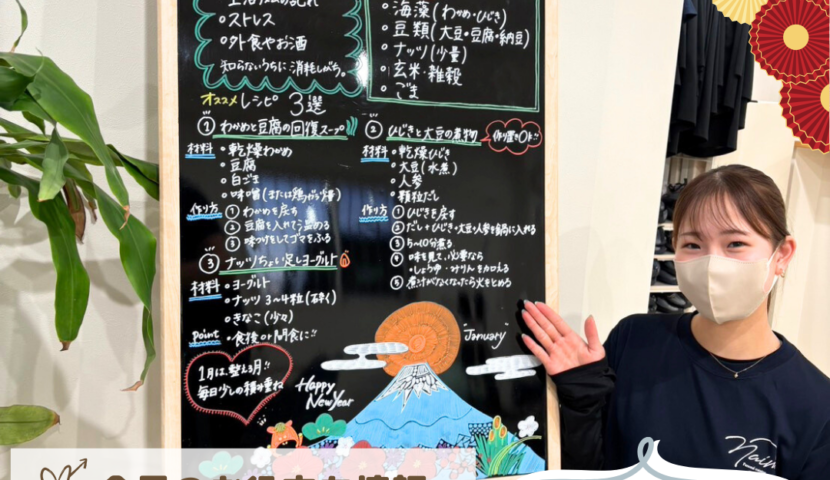 ストレス
外食やお酒
知らないうちに消耗しがち。
海藻(わかめ・ひじき)
豆類(大豆・豆腐・納豆)
ナッツ(少量)
玄米・雑穀
ごま
オススメレシピ3選
① わかめと豆腐の回復スープ
材料 乾燥わかめ
豆腐
白ごま
味噌(または鶏ガラ少量)
作り方 ① わかめを戻す
② 豆腐を入れて温める
③ 味つけをしてゴマをふる
② ひじきと大豆の煮物 作り置きOK!!
材料 乾燥ひじき
大豆(水煮)
人参
顆粒だし
作り方 ① ひじきを戻す
② だし+ひじき・大豆・人参を鍋に入れる
③ 5〜10分煮る
④ 味を見て、必要なら
・しょうゆ・みりんを加える
⑤ 煮汁がなくなったら火をとめる
③ ナッツちょい足しヨーグルト
材料 ヨーグルト
ナッツ 3〜4粒(砕く)
きなこ(少々)
Point ・食後or間食に!!
1月は、整える月!!
毎日少しの積み重ね
Happy
New Year
"January"